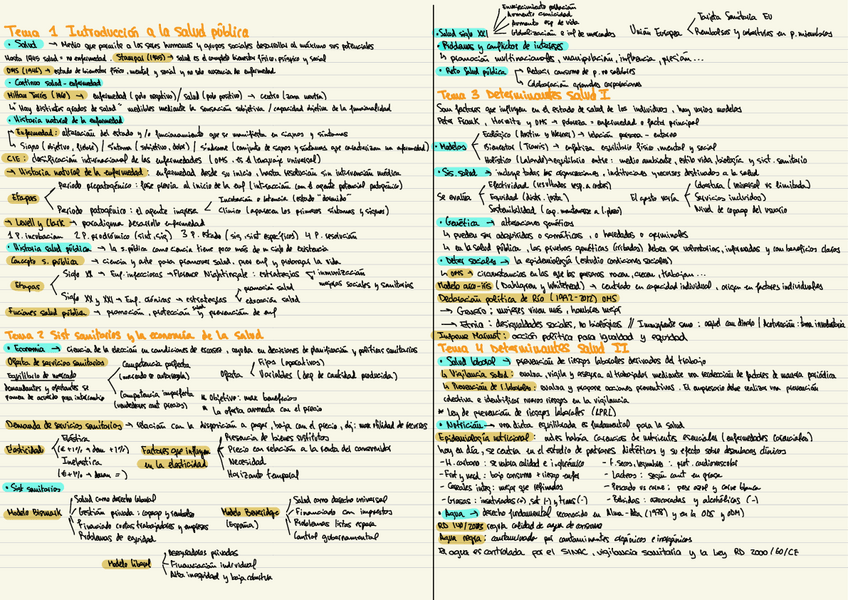 Tema 1 Introducción a la salud pública
• Salud → Medio que permite a los seres humanos y grupos sociales desarrollar al máximo sus potenciales
Hasta 1945 salud = no enfermedad. Stampar (1945) → Salud es el completo bienestar físico, psíquico y social
OMS (1946) → estado de bienestar físico, mental y social y no solo ausencia de enfermedad
• Continuo salud-enfermedad
Milton Terris → enfermedad (polo negativo) / salud (polo positivo) → centro (zona neutra)
↳ Hay distintos grados de salud medibles mediante la sensación subjetiva / capacidad objetiva de la funcionalidad
• Historia natural de la enfermedad
Enfermedad: alteración del estado y/o funcionamiento que se manifiesta en signos y síntomas
Signo (objetivo, fiebre) / síntoma (subjetivo, dolor) / síndrome (conjunto de signos y síntomas que caracterizan una enfermedad)
CIE: clasificación internacional de las enfermedades (OMS. es el lenguaje universal)
→ Historia natural de la enfermedad: enfermedad desde su inicio, hasta resolución sin intervención médica
Etapas
Periodo prepatogénico: fase previa al inicio de la enf (interacción con el agente potencial patogénico)
Periodo patogénico: el agente ingresa
Incubación o latencia (estado "dormido")
Clínico (aparecen los primeros síntomas y signos)
→ Lavell y Clark → paradigma desarrollo enfermedad
1 P. incubación 2 P. prodrómico (sist, sig) 3 P. estado (sig, sist específicos) 4 P. resolución
• Historia salud pública → la s. pública como ciencia tiene poco más de un siglo de existencia
Concepto s. pública → ciencia y arte para promover salud, prev enf y prolongar la vida
Etapas
Siglo XX → Enf. infecciosas → Florence Nightingale: estrategias
inmunización
mejoras sociales y sanitarias
Siglo XX y XXI → Enf. crónicas → estrategias
promoción salud
educación salud
Funciones salud pública → promoción, protección salud y prevención de enf
Tema 2 Sist sanitarios y la economía de la Salud
• Economía → Ciencia de la elección en condiciones de escasez, ayuda en decisiones de planificación y políticas sanitarias
Oferta de servicios sanitarios
Equilibrio de mercado
Demandantes y ofertantes se
ponen de acuerdo para intercambio
Competencia perfecta
Competencia imperfecta
Oferta
Fijos (operativos)
Variables (dep de cantidad producida)
* Objetivo: max beneficios
* La oferta aumenta con el precio
Demanda de servicios sanitarios → relación con la disposición a pagar, baja con el precio, obj: max utilidad de recursos
Elasticidad
Elástica
Inelástica
Factores que influyen
en la elasticidad
Presencia de bienes sustitutos
Precio con relación a la renta del consumidor
Necesidad
Horizonte temporal
• Sist sanitarios
Modelo Bismark
Salud como derecho laboral
Gestión privada: copago y reembolso
Financiado cuotas trabajadores y empresas
Problemas de equidad
Modelo Beveridge
(España)
Salud como derecho universal
Financiación con impuestos
Problemas listas espera
Control gubernamental
Modelo liberal
Aseguradoras privadas
Financiación individual
Alta inequidad y baja cobertura
• Salud siglo XXI
Envejecimiento población
Aumento cronicidad
Aumento esp. de vida
Globalización e inf de mercados
Unión Europea
Tarjeta Sanitaria EU
• Riddaura y conflictos de intereses
↳ promoción multinacionales, manipulación, influencia, presión...
• Reto Salud pública
Reducir consumo de p. no saludables
Colaboración grandes corporaciones
Tema 3 Determinantes salud I
Son factores que influyen en el estado de salud de los individuos, hay varios modelos
Peter Frank, Horwitz y OMS → pobreza - enfermedad o factor principal
• Modelos
Ecológico (Austin y Werner) → relación persona - entorno
Bienestar (Travis) → enfatiza equilibrio físico, mental y social
Holístico (Lalonde) → equilibrio entre: medio ambiente, estilo vida, biología y sist. sanitario
• Sis. salud → incluye todas las organizaciones, instituciones y recursos destinados a la salud
Se evalúa
Efectividad (resultados resp. a antes)
Equidad (distr. justa)
Sostenibilidad (cap. mantenerse a l. plazo)
El gasto varía
Cobertura (universal vs limitada)
Servicios incluidos
Nivel de copago del usuario
• Genética → alteraciones genéticas
↳ pueden ser adquiridas o somáticas, o heredadas o germinales
↳ en la salud pública, las pruebas genéticas (cribados) deben ser voluntarias, informadas y con beneficios claros
• Deter sociales → la epidemiología (estudia condiciones sociales)
↳ OMS → circunstancias en las que las personas nacen, crecen, trabajan...
Modelo arco-iris (Dahlgren y Whitehead) → centrado en capacidad individual, origen en factores individuales
Declaración política de Río OMS
→ Género: mujeres viven más, hombres mejor
→ Etnia: desigualdades sociales, no biológicas
Informe Marmot: acción política para igualdad y equidad
Tema 4 Determinantes Salud II
• Salud laboral → prevención de riesgos laborales derivados del trabajo
↳ Vigilancia salud: evalúa, vigila y asegura al trabajador mediante una recolección de factores de manera periódica
↳ Prevención de r. laborales: evalúa y propone acciones preventivas. El empresario debe realizar una prevención
colectiva e identificar nuevos riesgos en la vigilancia
* Ley de prevención de riesgos laborales (LPRL)
• Nutrición → una dieta equilibrada es fundamental para la salud
Epidemiología nutricional: antes había carencias de nutrientes esenciales (enfermedades carenciales)
hoy en día, se centra en el estudio de patrones dietéticos y su efecto sobre desenlaces clínicos
- H. carbono: se valora calidad e i. glucémico
- Frut y verd: bajo consumo = riesgo enfer
- Cereales integ: mejor que refinados
- Grasas: insaturadas (+), sat (-) y trans (-)
- F. secos, legumbres: prot. cardiovascular
- Lácteos: según cant en grasa
- Pescado vs carne: peces azul y carne blanca
- Bebidas: azucaradas y alcohólicas (-)
• Agua → derecho fundamental reconocido en Alma-Ata (1978) y en la ODS y ODM
RD 140/2003 regula calidad de agua de consumo
Agua negra: contaminada por contaminantes orgánicos e inorgánicos
El agua es controlada por el SINAC, vigilancia sanitaria y la ley RD 2000/60/CE